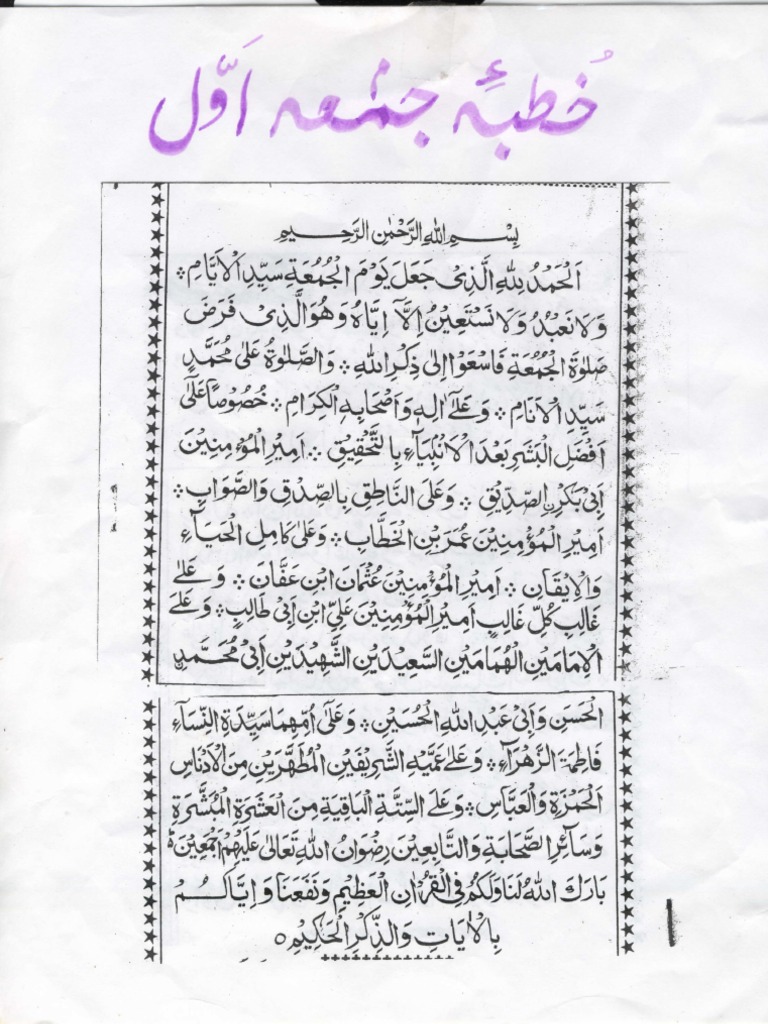 خُطبۂ جمعہ اَوّل
بِسْمِ اللهِ الرَّحْمٰنِ الرَّحِيمِ
اَلْحَمْدُ لِلّٰهِ الَّذِىْ جَعَلَ يَوْمَ الْجُمُعَةِ سَيِّدَ الْاَيَّامِ ۞
وَلَا نَعْبُدُ وَلَا نَسْتَعِيْنُ اِلَّآ اِيَّاهُ وَهُوَ الَّذِىْ فَرَضَ
صَلٰوةَ الْجُمُعَةِ فَاسْعَوْا اِلٰى ذِكْرِ اللهِ ۞ وَالصَّلٰوةُ عَلٰى مُحَمَّدٍ
سَيِّدِ الْاَنَامِ ۞ وَعَلٰٓى اٰلِهٖ وَاَصْحَابِهِ الْكِرَامِ ۞ خُصُوْصًا عَلٰٓى
اَفْضَلِ الْبَشَرِ بَعْدَ الْاَنْبِيَآءِ بِالتَّحْقِيْقِ ۞ اَمِيْرِ الْمُؤْمِنِيْنَ
اَبِىْ بَكْرِنِ الصِّدِّيْقِ ۞ وَعَلَى النَّاطِقِ بِالصِّدْقِ وَالصَّوَابِ ۞
اَمِيْرِ الْمُؤْمِنِيْنَ عُمَرَ بْنِ الْخَطَّابِ ۞ وَعَلٰى كَامِلِ الْحَيَآءِ
وَالْاِيْقَانِ ۞ اَمِيْرِ الْمُؤْمِنِيْنَ عُثْمَانَ ابْنِ عَفَّانَ ۞ وَعَلٰى
غَالِبِ كُلِّ غَالِبٍ اَمِيْرِ الْمُؤْمِنِيْنَ عَلِيِّ ابْنِ اَبِىْ طَالِبٍ ۞ وَعَلَى
الْاِمَامَيْنِ الْهُمَامَيْنِ السَّعِيْدَيْنِ الشَّهِيْدَيْنِ اَبِىْ مُحَمَّدٍ
الْحَسَنِ وَاَبِىْ عَبْدِ اللهِ الْحُسَيْنِ ۞ وَعَلٰٓى اُمِّهِمَا سَيِّدَةِ النِّسَآءِ
فَاطِمَةَ الزَّهْرَآءِ ۞ وَعَلٰى عَمَّيْهِ الشَّرِيْفَيْنِ الْمُطَهَّرَيْنِ مِنَ الْاَدْنَاسِ
الْحَمْزَةِ وَالْعَبَّاسِ ۞ وَعَلَى السِّتَّةِ الْبَاقِيَةِ مِنَ الْعَشَرَةِ الْمُبَشَّرَةِ
وَسَآئِرِ الصَّحَابَةِ وَالتَّابِعِيْنَ رِضْوَانُ اللهِ تَعَالٰى عَلَيْهِمْ اَجْمَعِيْنَ ط
بَارَكَ اللهُ لَنَا وَلَكُمْ فِى الْقُرْاٰنِ الْعَظِيْمِ وَنَفَعَنَا وَاِيَّاكُمْ
بِالْاٰيَاتِ وَالذِّكْرِ الْحَكِيْمِ ۝